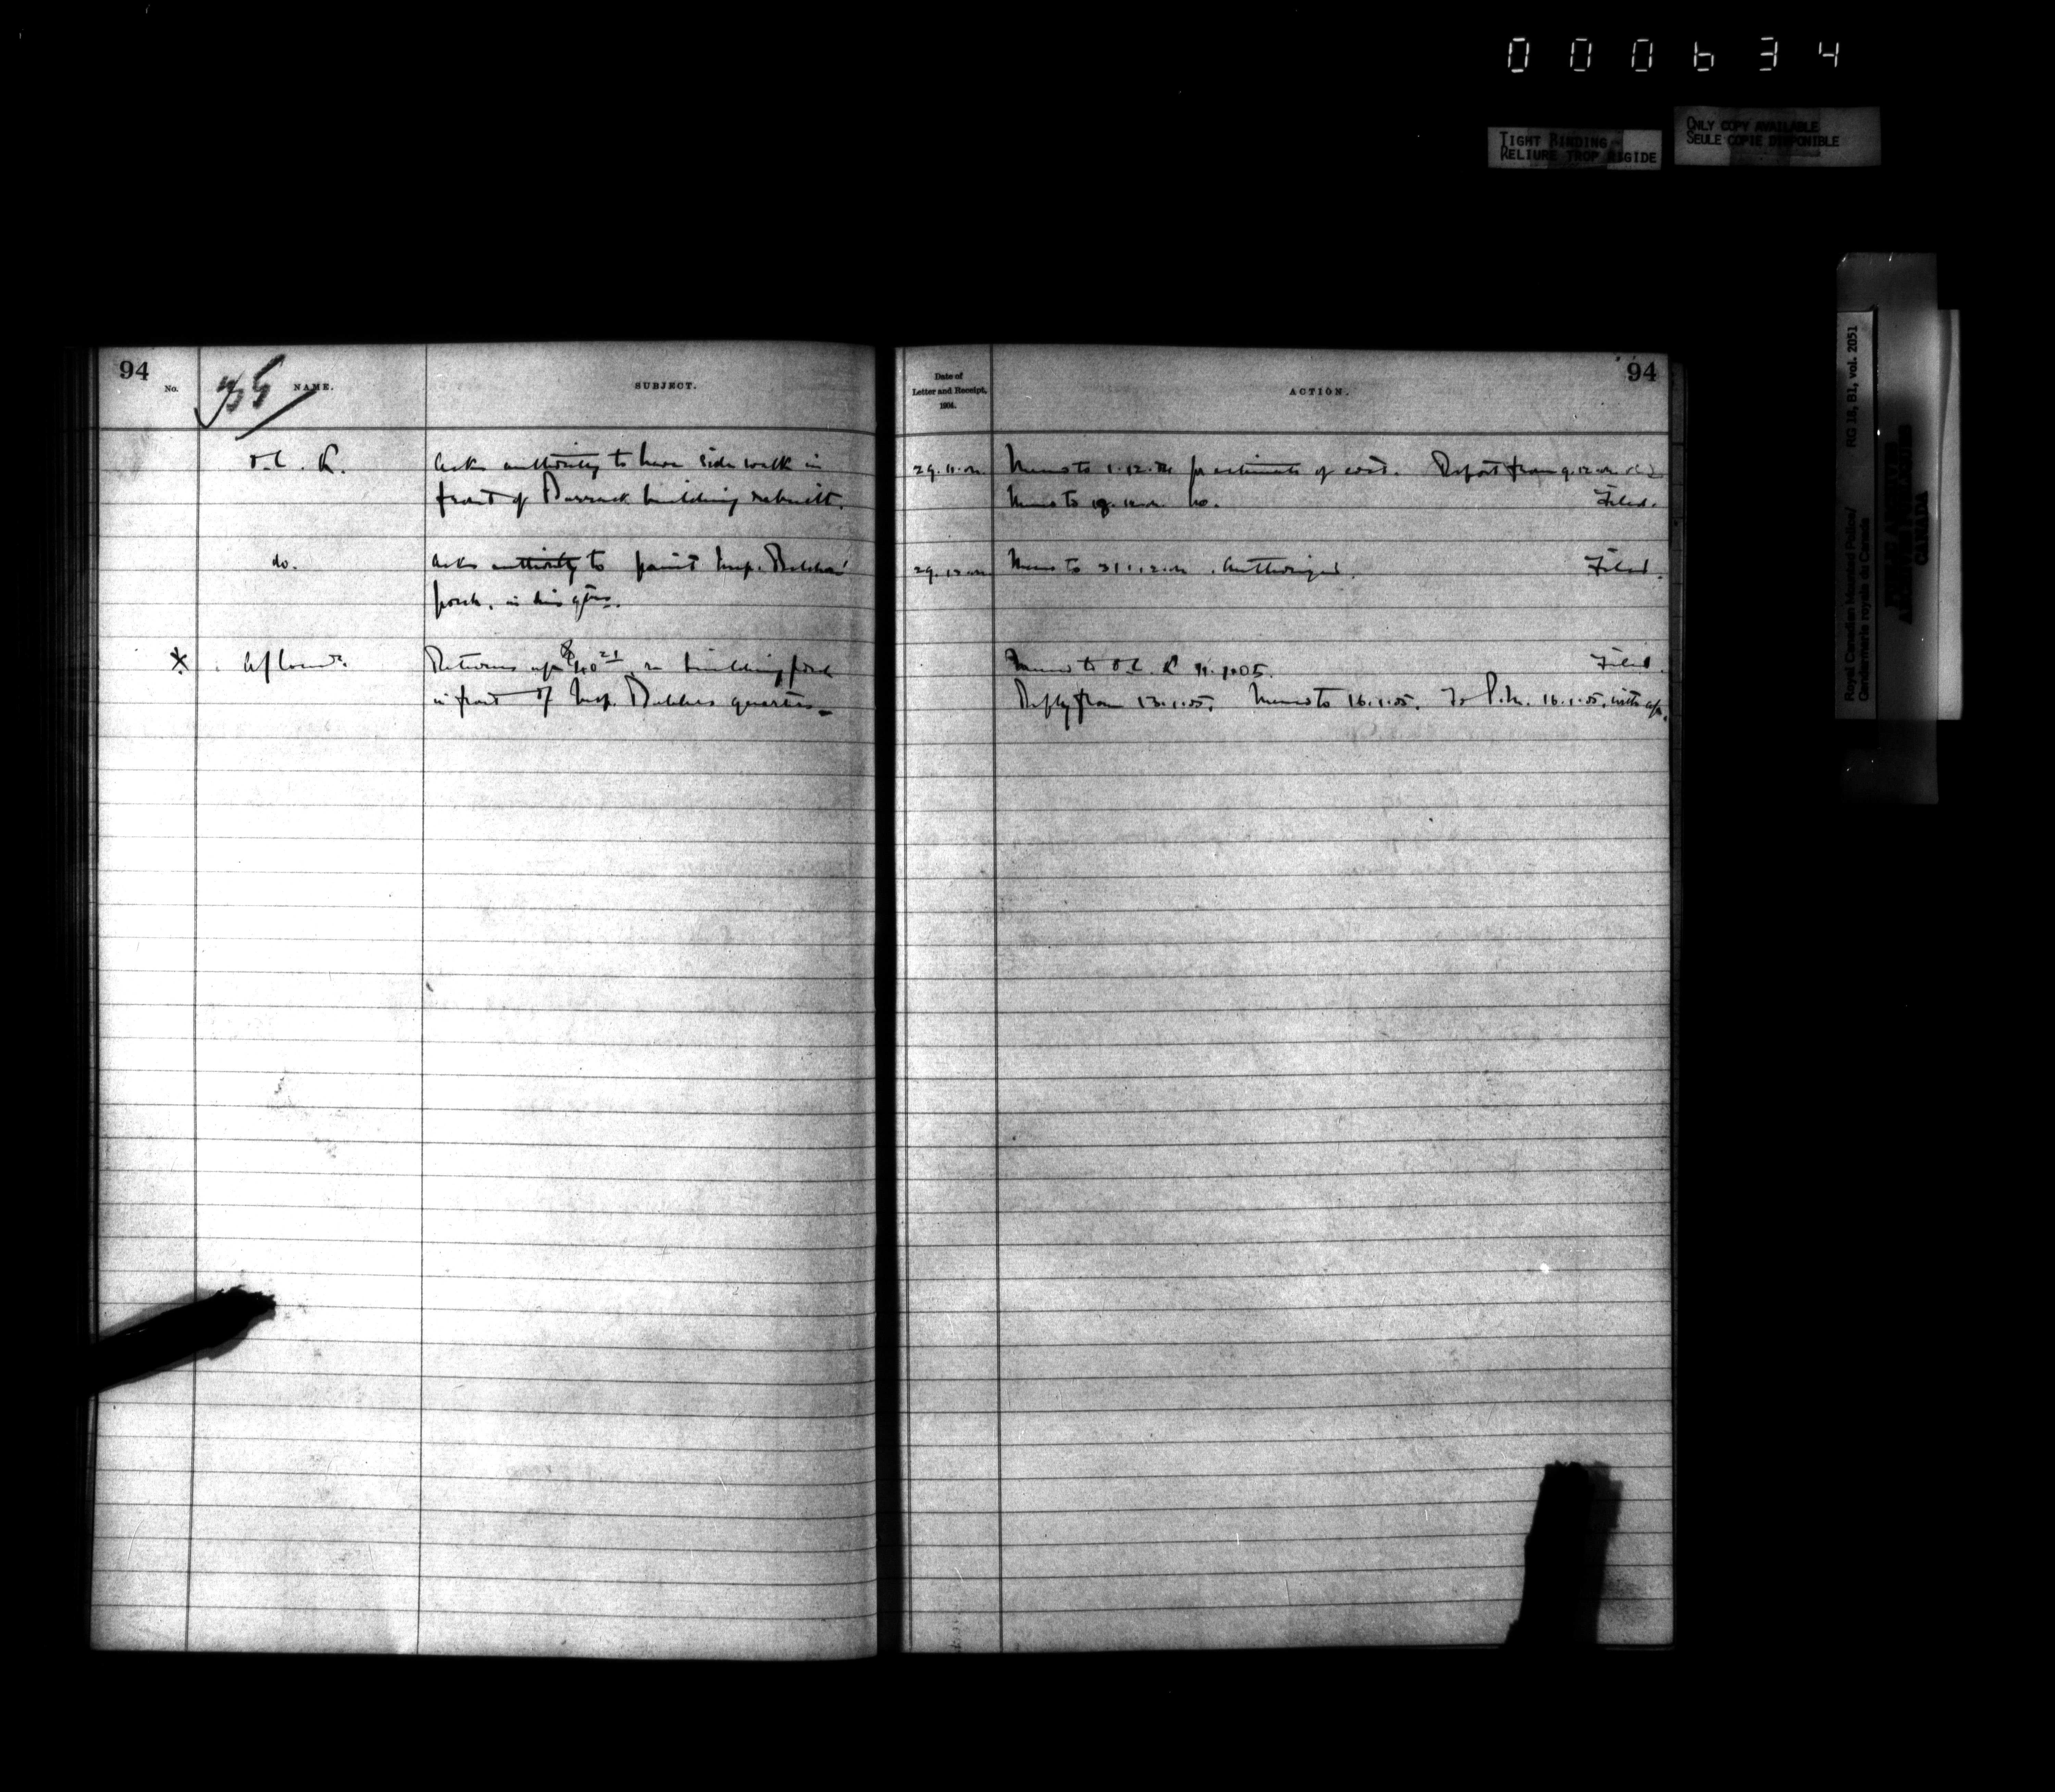 000634
TIGHT BINDING
RELIURE TROP RIGIDE
ONLY COPY AVAILABLE
SEULE COPIE DISPONIBLE
Royal Canadian Mounted Police/
Gendarmerie royale du Canada
RG 18, B1, vol. 2051
CANADA
94
No.
NAME.
SUBJECT.
Date of
Letter and Receipt,
1904.
ACTION.
94
O.C. R.
Asks authority to have side walk in
front of Barrack building rebuilt.
29.11.04
Memo to 1.12.04 for estimate of cost. Report from 9.12.04
Memo to 19.12.04 no. Filed.
do.
Asks authority to paint Insp.
porch, in his qtrs.
29.12.04
Memo to 31.12.04. Authorized. Filed.
*
Returns a/c $40 21 re building porch
in front of Insp. quarters
Memo to O.C. R 11.1.05. Filed.
Reply from 13.1.05. Memo to 16.1.05. To P.M. 16.1.05, with a/c.